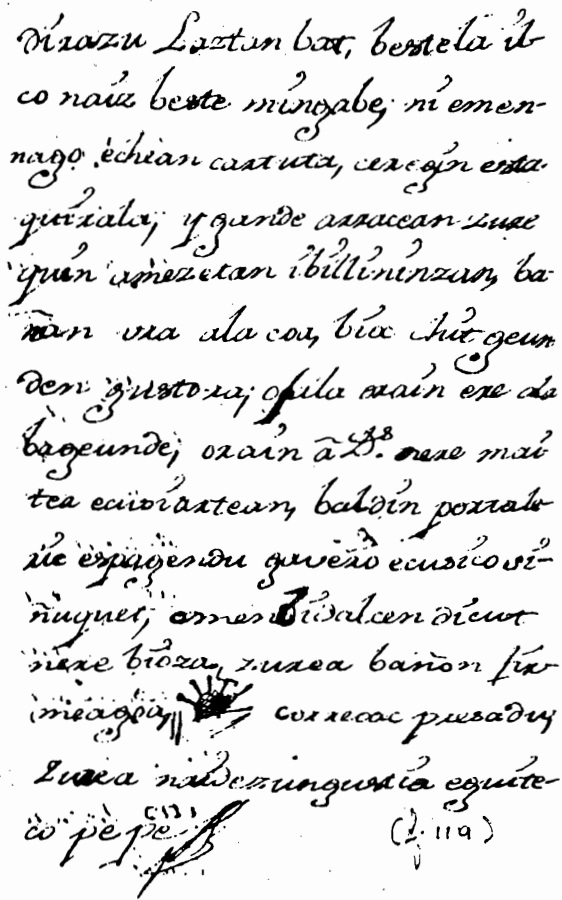 dirazu Laztan bat, bestela il-
co naiz beste mingabe; ni emen-
nago echean cartuta, cergin esta-
quirala; y gande arracean zure
quin amezetan ibillininzan, ba-
ñan ura ala coa, bia chit geun
den gustora; ojala orain ere ala
bageunde; orain â D.s nere mai
tea ecusiartean, baldin portale
ric espagendu guero ecusico si-
ñuquet; emen bidalcen dicut
nere bioza, zurea bañon fir
meagoa, correoac presadu;
zurea naidezunguztia eguite-
co pepe (13)
(f. 119)